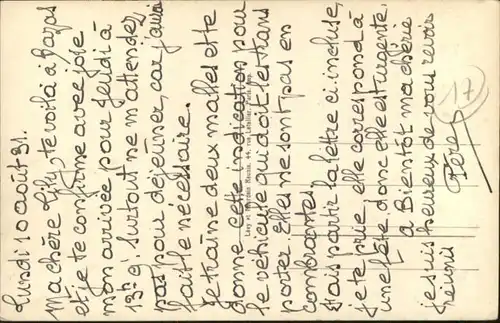 Lundi 10 août 31.
Ma chère Lily, te voilà à Bazas
et je te confirme avec joie
mon arrivée pour Jeudi à
13h 9'. Surtout ne m'attendez
pas pour déjeuner, car j'aurai
fait le nécessaire.
Je traîne deux malles et te
donne cette indication pour
le véhicule qui doit les trans
porter. Elles ne sont pas en
combrantes.
Fais partir la lettre ci. incluse,
je te prie, elle correspond à
une fête. donc elle est urgente.
à Bientôt ma chérie
je suis heureux de vous revoir
réunis
Père
17
Lévy et Neurdein Réunis, 44, rue Letellier, Paris. Imp.